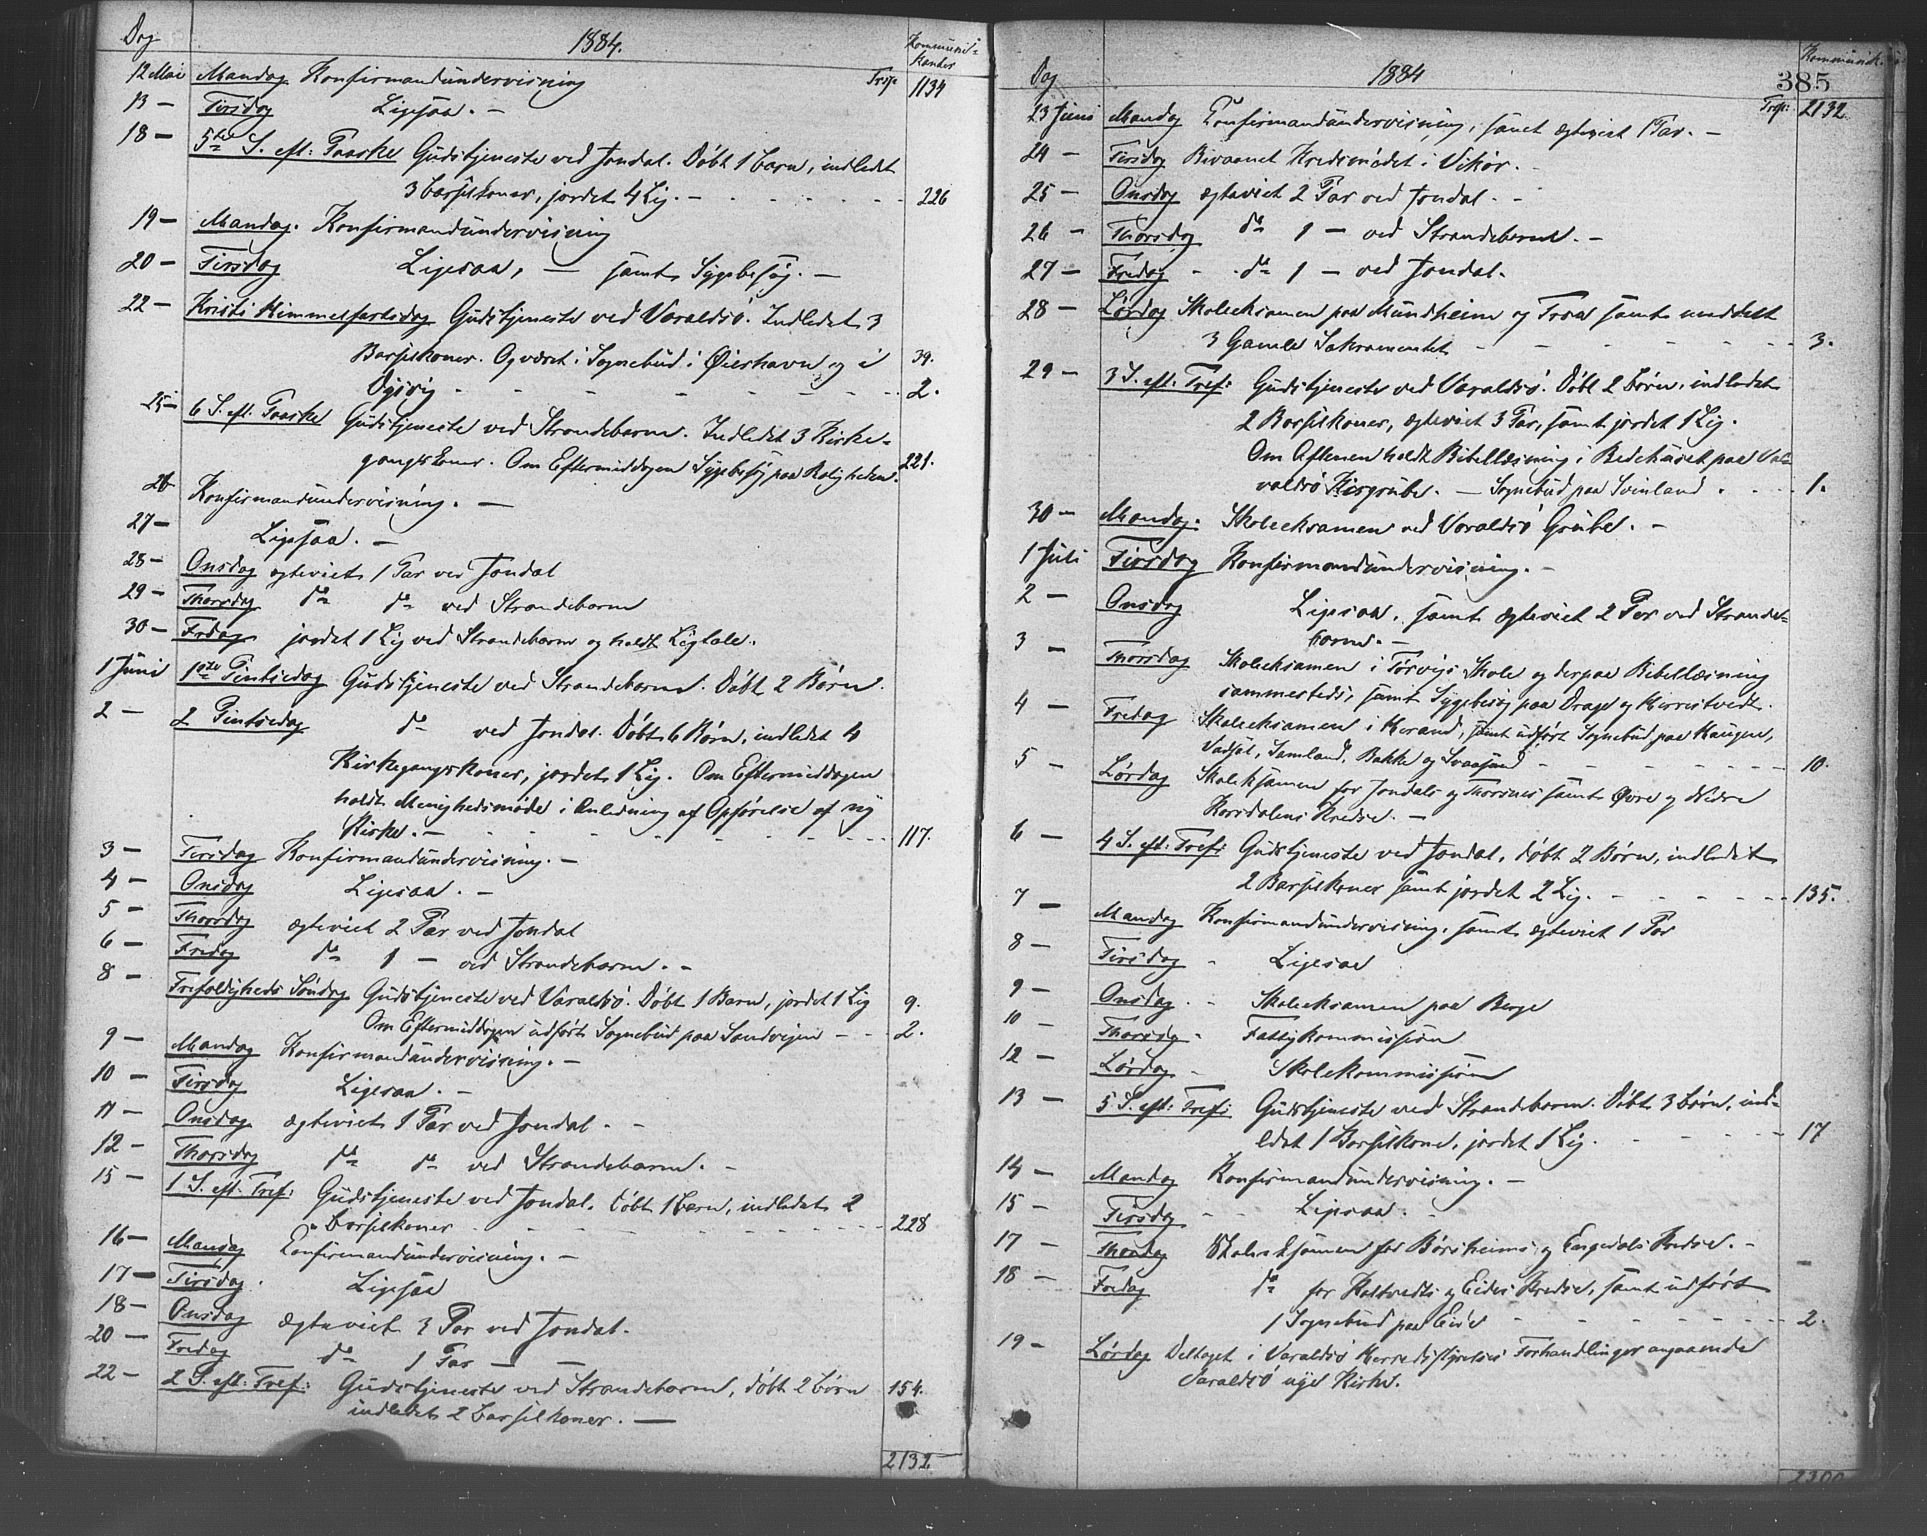 Dag 1884. Kommuni-
kanter
12 Mai Mandag Konfirmandundervisning Trsp. 1134
13 — Tirsdag Ligesaa. —
18 — 5te S. eft: Paaske Gudstjeneste ved Jondal. Døbt 1 barn, indledet
3 barselkoner, jordet 4 Lig. — 226
19 — Mandag. Konfirmandundervisning
20 — Tirsdag Ligesaa, — samt Sygebesøg. —
22 — Kristi Himmelfartsdag Gudstjeneste ved Varaldsø. Indledet 3
Barselkoner. Og været i Sognebud i Øierhavn og i 39.
2.
25 — 6 S. eft. Paaske Gudstjeneste ved Strandebarm. Indledet 3 Kirke-
gangskoner. Om Eftermiddagen Sygebesøg paa Roligheden. 221.
26 Konfirmandundervisning. —
27 — Ligesaa. —
28 — Onsdag ægteviet 1 Par ved Jondal
29 — Thorsdag do do ved Strandebarm
30 — Frdag jordet 1 Lig ved Strandebarm og holdt Ligtale.
1 Juni 1ste Pintsedag Gudstjeneste ved Strandebarm. Døbt 2 Børn.
2 — 2 Pintsedag do ved Jondal. Døbt 6 Børn, indledet 4
Kirkegangskoner, jordet 1 Lig. Om Eftermiddagen
holdt Menighedsmøde i Anledning af Opførelse af ny
Kirke. — 117.
3 — Tirsdag Konfirmandundervisning. —
4 — Onsdag Ligesaa. —
5 — Thorsdag ægteviet 2 Par ved Jondal
6 — Fredag do 1 — ved Strandebarm. —
8 — Trefoldigheds Søndag Gudstjeneste ved Varaldsø. Døbt 1 Barn, jordet 1 Lig 9.
Om Eftermiddagen udført Sognebud paa Sandvigen — 2.
9 — Mandag Konfirmandundervisning. —
10 — Tirsdag Ligesaa. —
11 — Onsdag ægteviet 1 Par ved Jondal. —
12 — Thorsdag do do ved Strandebarm. —
15 — 1 S. eft. Tref: Gudstjeneste ved Jondal. Døbt 1 Barn, indledet 2
barselkoner 228
16 — Mandag Konfirmandundervisning. —
17 — Tirsdag. Ligesaa
18 — Onsdag ægteviet 3 Par ved Jondal.
20 — Fredag do 1 Par — —
22 — 2 S. eft. Tref: Gudstjeneste ved Strandebarm, døbt 2 børn 154.
indledet 2 barselkoner. —
2132
Dag 1884 Kommunik.
385
23 Juni Mandag Konfirmandundervisning, samt ægteviet 1 Par. — Trsp: 2132
24 — Tirsdag Bivaanet Kredsmødet i Vikør.
25 — Onsdag ægteviet 2 Par ved Jondal. —
26 — Thorsdag do 1 — ved Strandebarm. —
27 — Fredag — do 1 — ved Jondal.
28 — Lørdag Skoleeksamen paa Mundheim og Troa samt meddelt
3 Gamle Sakramentet 3.
29 — 3 S. eft. Tref: Gudstjeneste ved Varaldsø. Døbt 2 Børn, indledet
2 Barselkoner, ægteviet 3 Par, samt jordet 1 Lig.
Om Aftenen holdt Bibellæsning i Bedehuset paa Va-
raldsø Kisgrube. — Sognebud paa Svinland. 1.
30 — Mandag. Skoleeksamen ved Varaldsø Grube. —
1 Juli Tirsdag Konfirmandundervisning. —
2 — Onsdag Ligesaa, samt ægteviet 2 Par ved Strande-
barm. —
3 — Thorsdag Skoleeksamen i Tørvigs Skole og derpaa Bibellæsning
sammesteds, samt Sygebesøg paa Drage og
4 — Fredag Skoleeksamen i Herand, samt udført Sognebud paa Haugen,
Samland, Bakke og Svaasand 10.
5 — Lørdag Skoleeksamen for Jondals og Thorsnes samt Øvre og Nedre
Krosdalens Kredse. —
6 — 4 S. eft: Tref: Gudstjeneste ved Jondal, døbt 2 Børn, indledet
2 Barselkoner samt jordet 2 Lig. 135.
7 — Mandag Konfirmandundervisning, samt ægteviet 1 Par
8 — Tirsdag — Ligesaa
9 — Onsdag. — Skoleeksamen paa Berge
10 — Thorsdag — Fattigkommission
12 — Lørdag — Skolekommission
13 — 5 S. eft: Tref: Gudstjeneste ved Strandebarm. Døbt 3 børn, ind-
ledet 1 Barselkone, jordet 1 Lig. 17
14 — Mandag Konfirmandundervisning. —
15 — Tirsdag — Ligesaa.
17 — Thorsdag Skoleeksamen for Børsheims og Engedals Kredse. —
18 — Fredag do for Haltvedts og Eides Kredse, samt udført
1 Sognebud paa Eide 2.
19 — Lørdag Deltaget i Varaldsø Herredsstyrelses Forhandlinger angaaende
Varaldsø nye Kirke.
2300